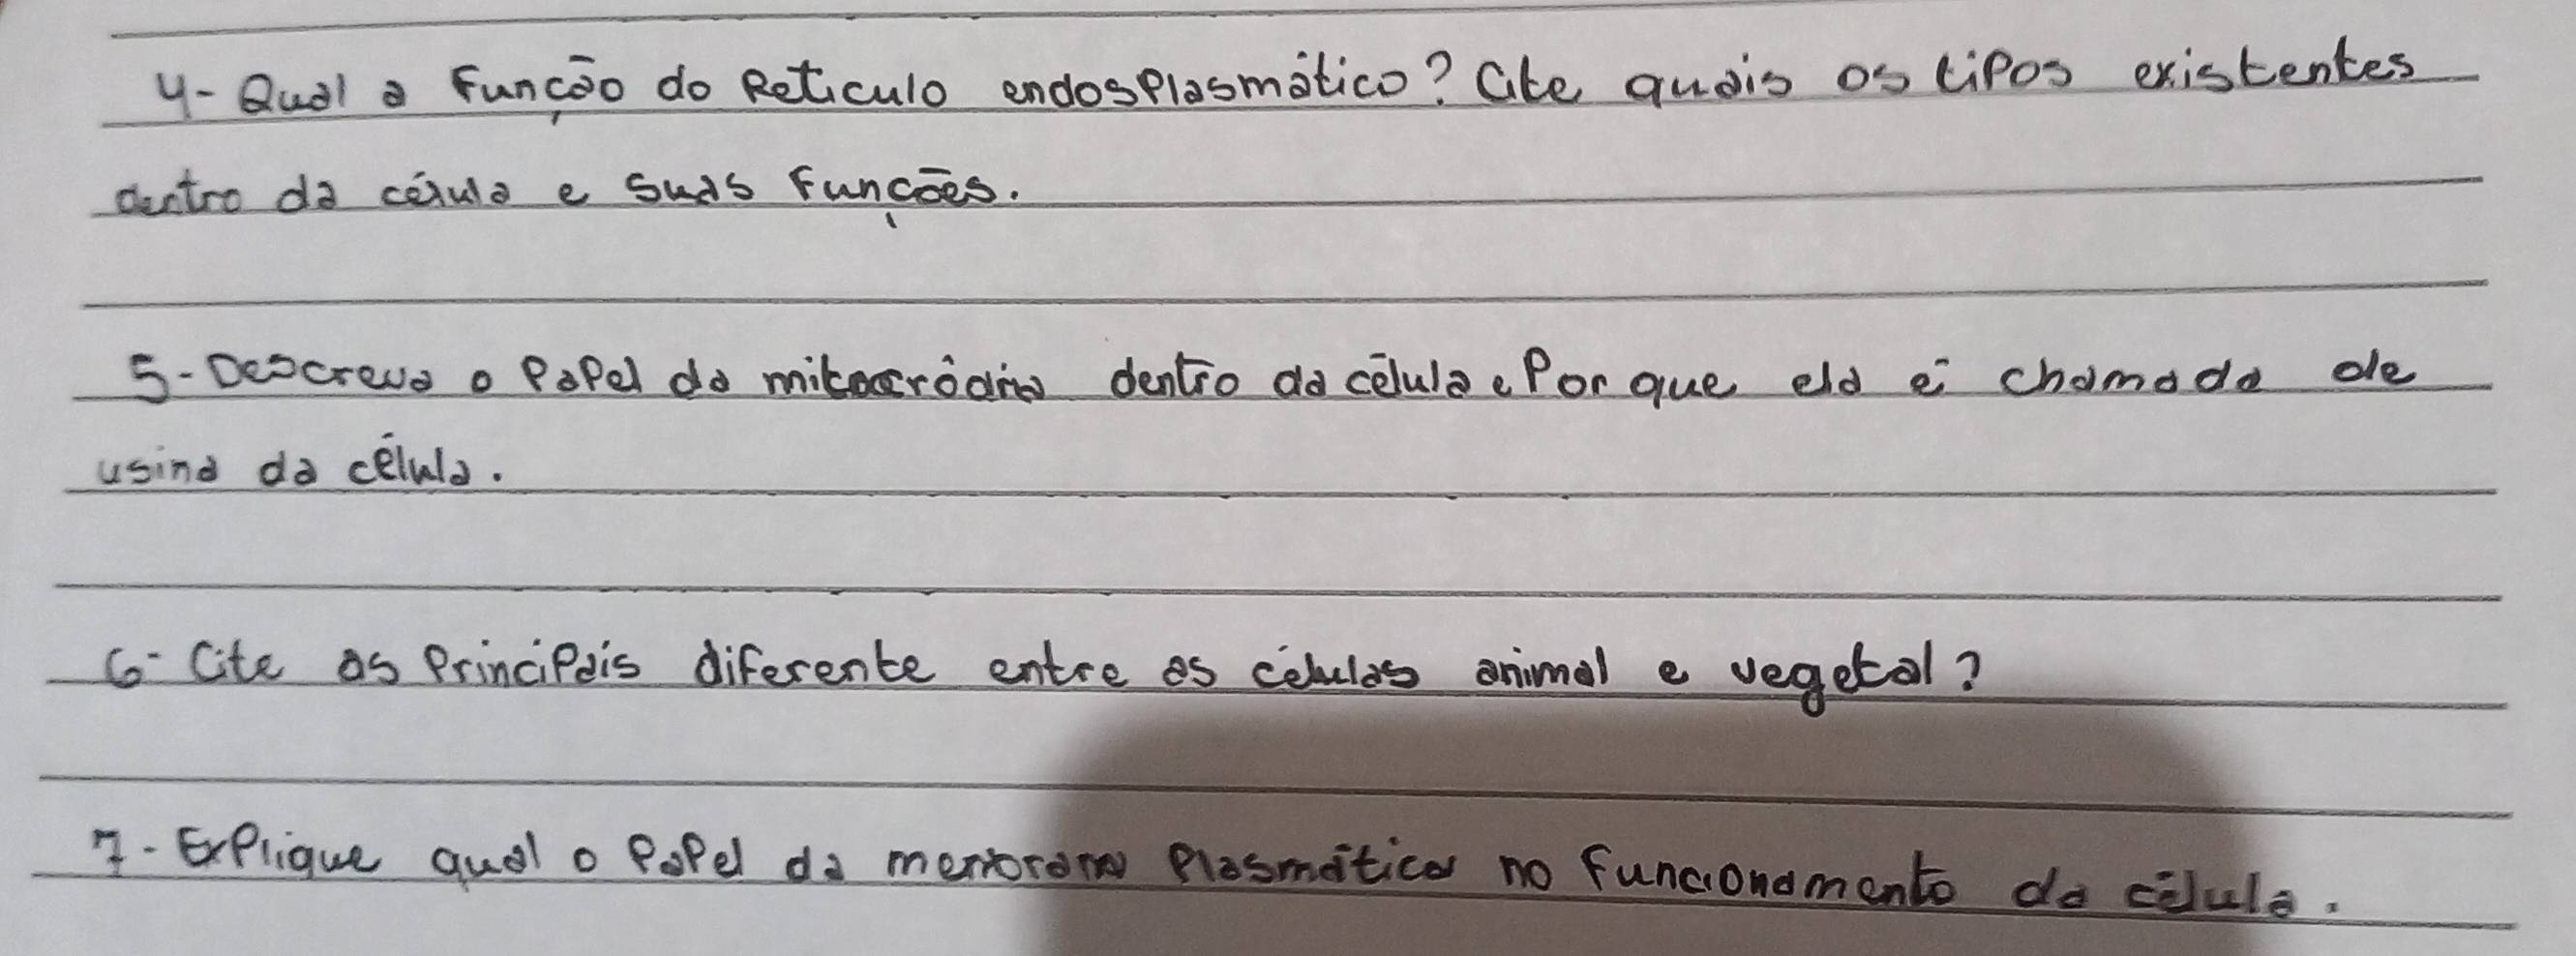 4- Qual a Função do Reticulo endosplasmático? Cite quais os tipos existentes
dentro da célula e suas Funções.
5- Descreva o Papel da dentro da célula e Por que ela é chamada de
usina da célula.
6- Cite as Principais diferente entre as células animal e vegetal?
7- Explique qual o Papel da membrana Plasmática no Funcionamento da célula.